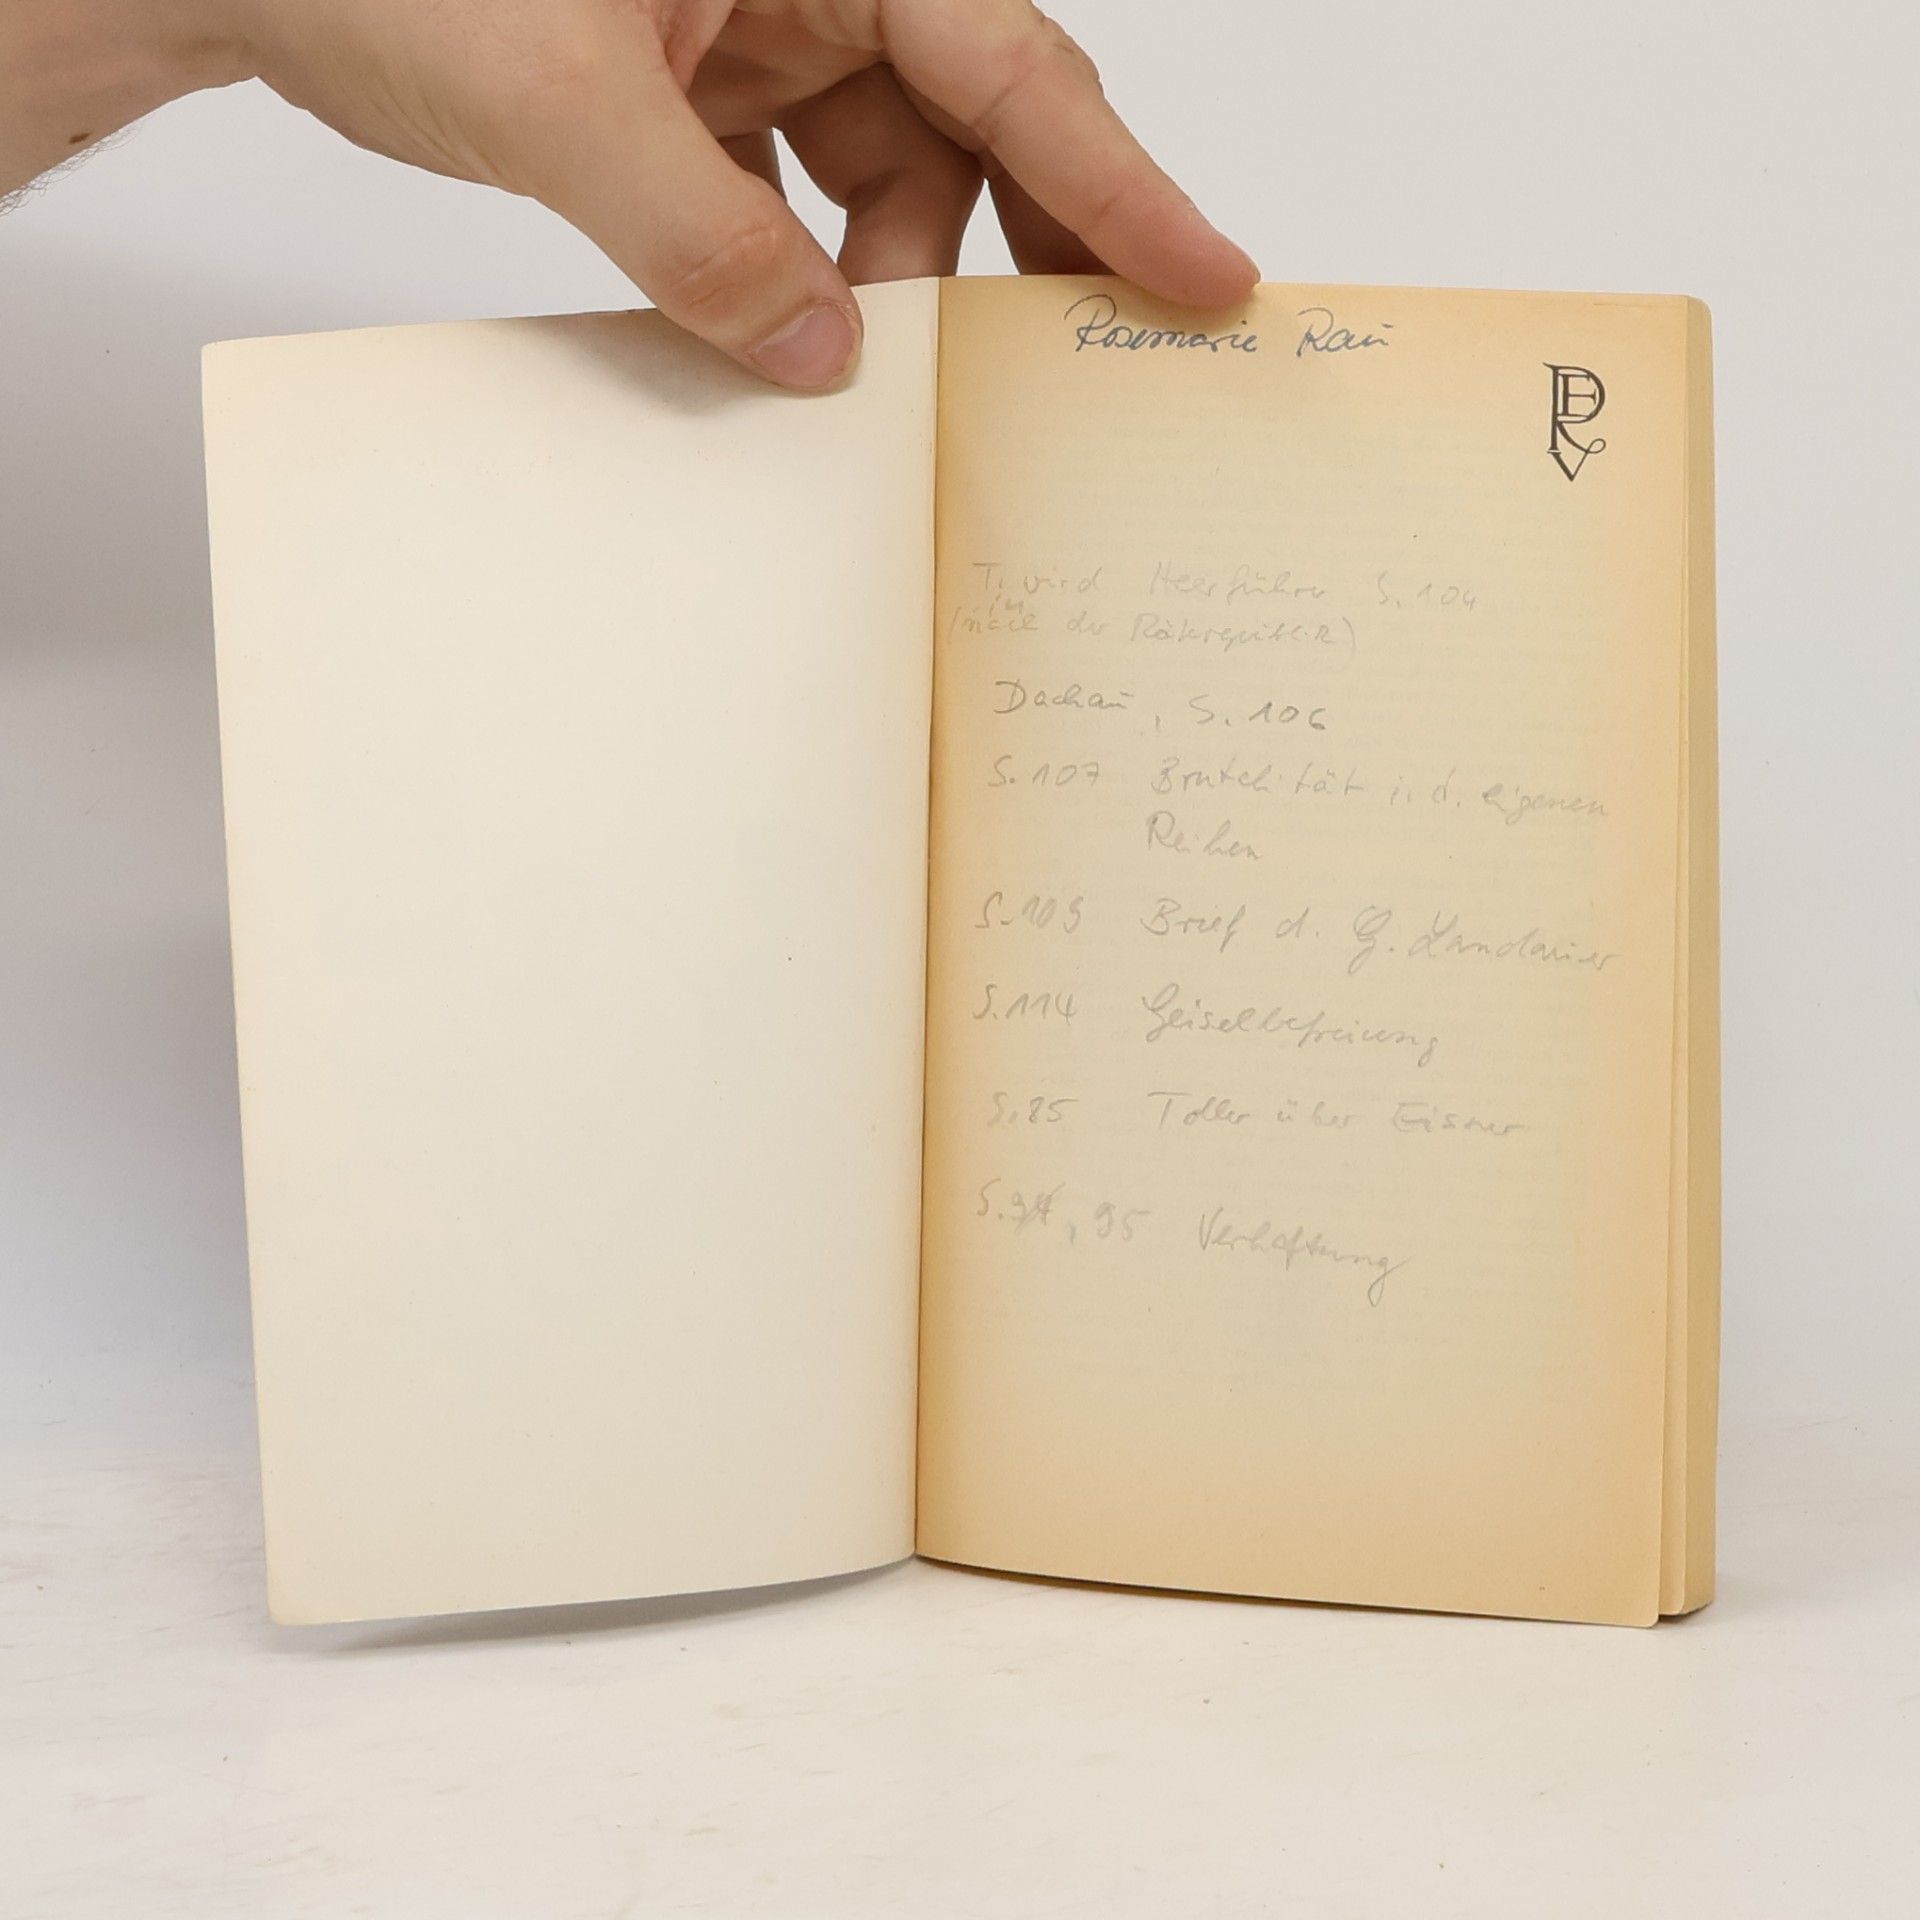 Rosemarie Rau
T. wird Heerführer S. 104
in
der Räterepublik)
Dachau, S. 106
S. 107 Brutalität i. d. eigenen
Reihen
S. 109 Brief d. G. Landauer
S. 114 Geiselbefreiung
S. 85 Toller über Eisner
S. , 95 Verhaftung